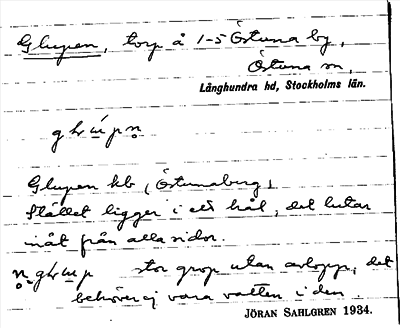 Glupen, torp å 1-5 Östuna by,
Östuna sn,
Långhundra hd, Stockholms län.
Glupen kb (Östunaberg)
Stället ligger i ett hål, det lutar
inåt från alla sidor.
stor grop utan avlopp, det
behöver ej vara vatten i den.
JÖRAN SAHLGREN 1934.